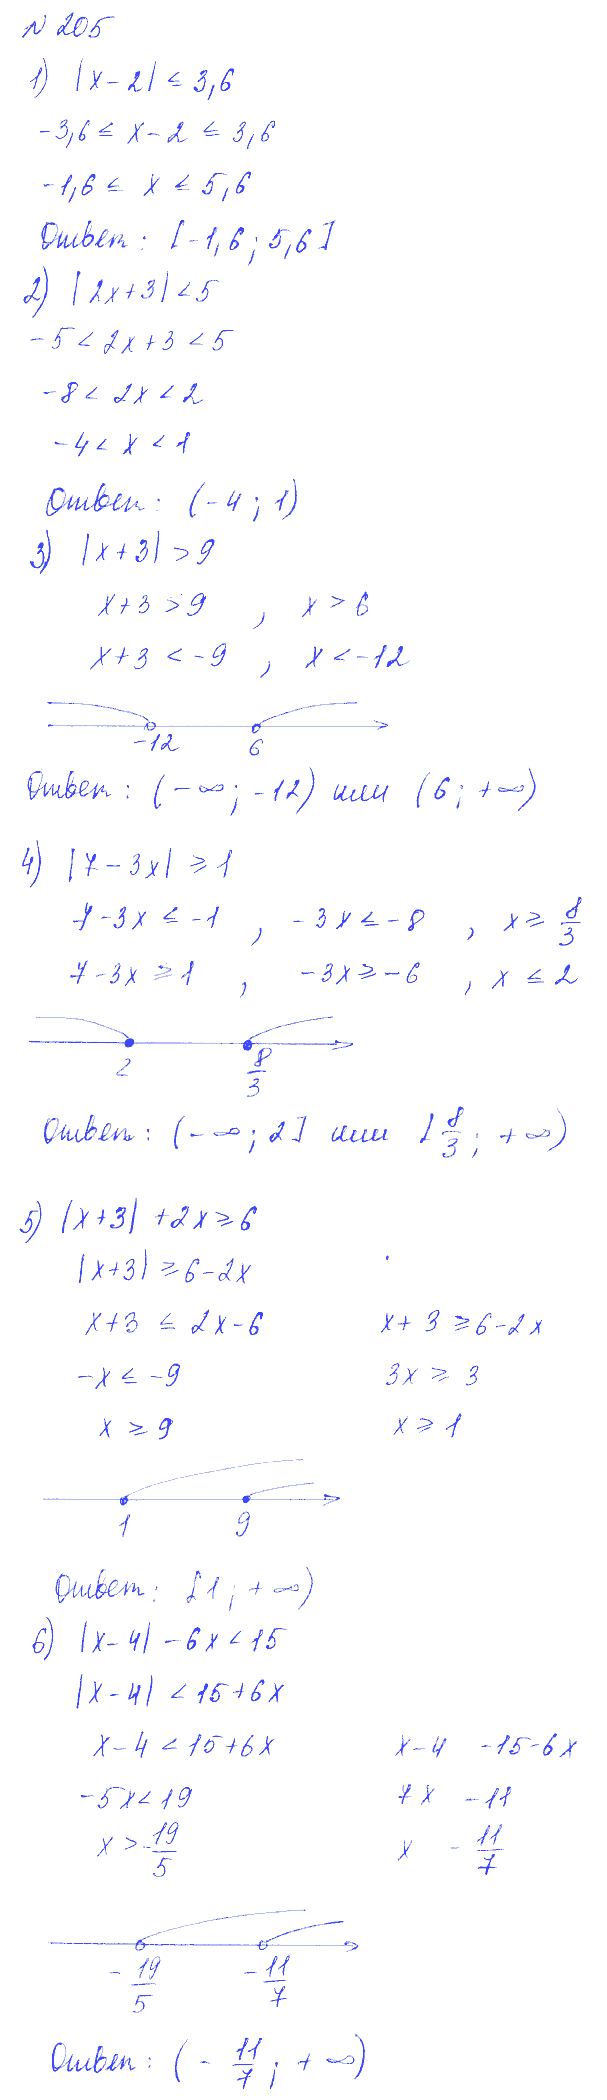 N 205
1) |x-2| ≤ 3,6
-3,6 ≤ x-2 ≤ 3,6
-1,6 ≤ x ≤ 5,6
Ответ: [-1,6; 5,6]
2) |2x+3| < 5
-5 < 2x+3 < 5
-8 < 2x < 2
-4 < x < 1
Ответ: (-4; 1)
3) |x+3| > 9
x+3 > 9 , x > 6
x+3 < -9 , x < -12
-12 6
Ответ: (-∞; -12) или (6; +∞)
4) |7-3x| ≥ 1
7-3x ≤ -1 , -3x ≤ -8 , x ≥ 8/3
7-3x ≥ 1 , -3x ≥ -6 , x ≤ 2
2 8/3
Ответ: (-∞; 2] или [8/3; +∞)
5) |x+3| + 2x ≥ 6
|x+3| ≥ 6-2x
x+3 ≤ 2x-6 x+3 ≥ 6-2x
-x ≤ -9 3x ≥ 3
x ≥ 9 x ≥ 1
1 9
Ответ: [1; +∞)
6) |x-4| - 6x < 15
|x-4| < 15+6x
x-4 < 15+6x x-4 -15-6x
-5x < 19 7x -11
x > -19/5 x -11/7
-19/5 -11/7
Ответ: (-11/7; +∞)